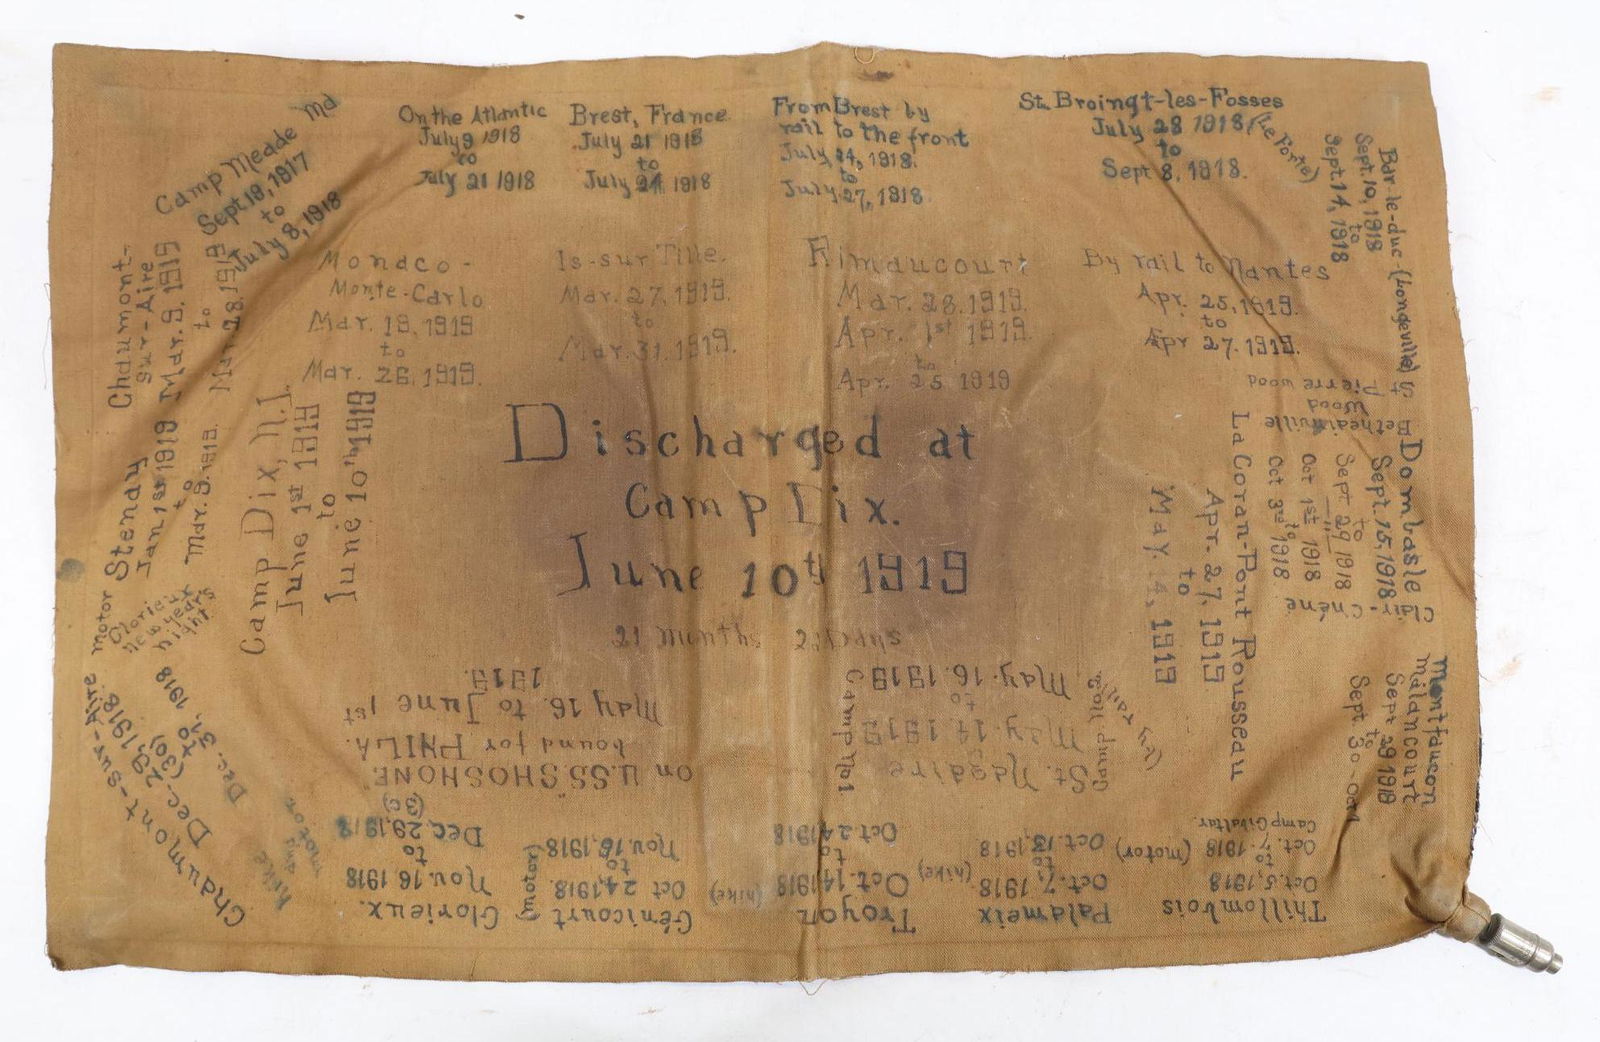 Camp Meade Md
Sept 19, 1917
to
July 8, 1918
On the Atlantic
July 9 1918
to
July 21 1918
Brest, France
July 21 1918
to
July 24 1918
From Brest by
rail to the front
July 24, 1918.
to
July 27, 1918
St. Broingt-les-Fosses
(Le Forte)
July 28 1918,
to
Sept 8, 1918.
Bar-le-duc (Longeville)
Sept. 10, 1918
to
Sept. 14, 1918
St Pierre wood
Wood
Dombasle
Sept. 15, 1918.
to
Sept 29 1918
Oct 1st 1918
to
Oct 3rd 1918
Clair-Chêne
Montfaucon
Malancourt
Sept 29 1918
to
Sept 30-
Thillombois
Oct. 5, 1918
to
Oct. 7. 1918
Camp Gibraltar.
(motor)
Palameix
Oct. 7, 1918
to
Oct. 13, 1918
(hike)
Troyon
Oct. 14, 1918
to
Oct. 24, 1918
(hike)
Génicourt
Oct 24, 1918.
to
Nov. 16, 1918
(motor)
Glorieux.
Nov. 16 1918
to
Dec. 29, 1918
(30)
hike
and
motor
Chaumont-sur-Aire
Dec. 29, 1918
(30)
to
Dec. 31, 1918
Glorieux
New years
night
motor
Stenay
Jan 1st 1919
to
Mar. 9. 1919.
Chaumont-
sur-Aire
Mar. 9. 1919
to
Mar. 28. 1919
Monaco-
Monte-Carlo
Mar. 19, 1919
to
Mar. 26, 1919.
Is-sur Tille.
Mar. 27, 1919.
to
Mar. 31, 1919.
Rimaucourt
Mar. 28. 1919.
Apr. 1st 1919.
to
Apr. 25 1919
By rail to Nantes
Apr. 25, 1919.
to
Apr 27. 1919.
La Coran-Pont Rousseau
Apr. 27, 1919
to
May 14, 1919
(by rail)
St. Nazaire
May. 14. 1919
to
May. 16. 1919
Camp No 1.
Camp No 2
on "U.S.S. SHOSHONE"
bound for PHILA.
May 16. to June 1st
1919.
Camp Dix, N.J.
June 1st 1919
to
June 10th 1919
Discharged at
Camp Dix.
June 10th 1919
21 Months days